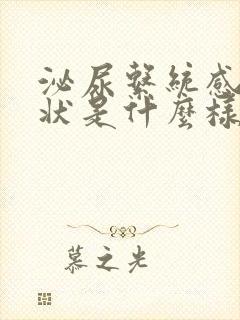 泌尿繫統感
狀是什麼樣
慕之光